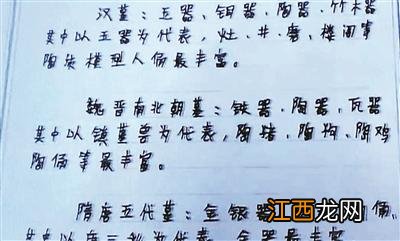 汉墓：玉器、铜器、陶器、竹木器
其中以玉器为代表，灶、井、磨、楼阁等
陶质模型人俑最丰富。
魏晋南北朝墓：铁器、陶器、瓦器
其中以镇墓兽为代表，陶猪、陶狗、陶鸡
陶俑等最丰富。
隋唐五代墓：金银器 俑，
其中以唐三彩为代表，金器最丰富
江西龙网